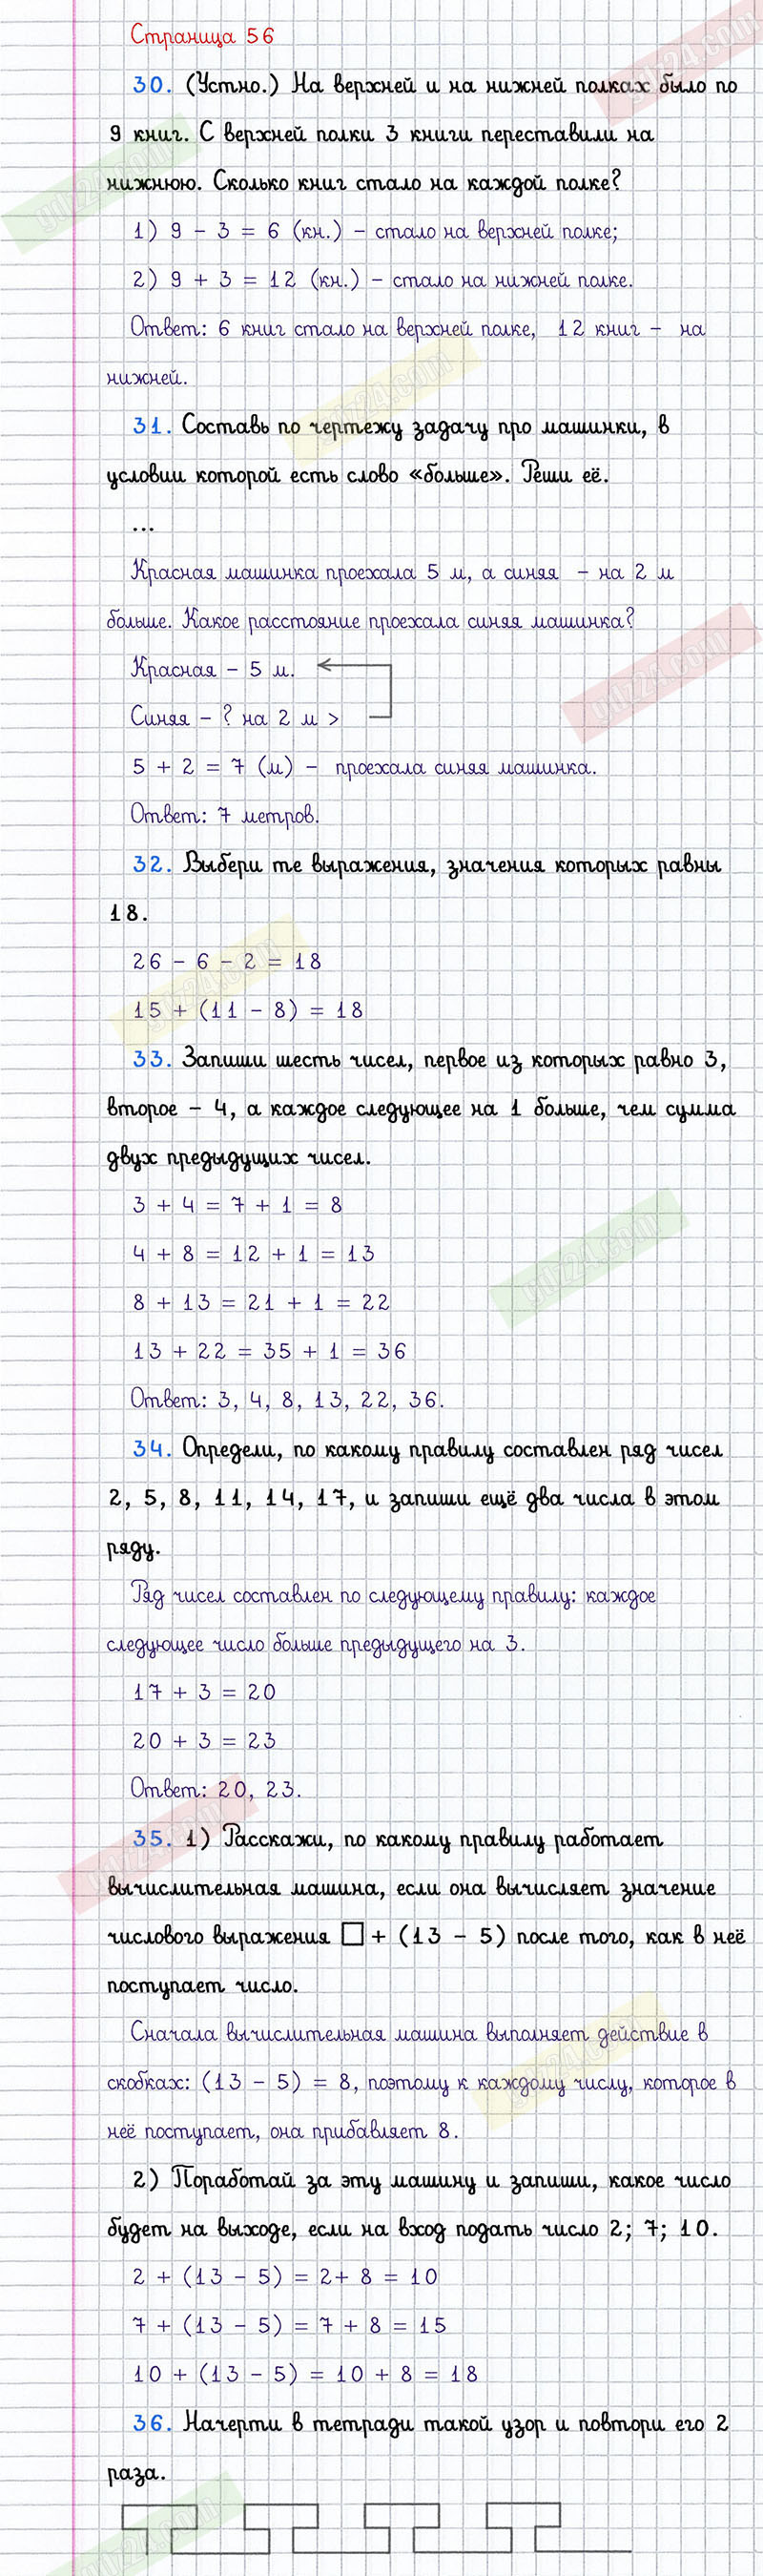 Страница 56
30. (Устно.) На верхней и на нижней полках было по
9 книг. С верхней полки 3 книги переставили на
нижнюю. Сколько книг стало на каждой полке?
1) 9 - 3 = 6 (кн.) - стало на верхней полке;
2) 9 + 3 = 12 (кн.) - стало на нижней полке.
Ответ: 6 книг стало на верхней полке, 12 книг - на
нижней.
31. Составь по чертежу задачу про машинки, в
условии которой есть слово «больше». Реши её.
...
Красная машинка проехала 5 м, а синяя - на 2 м
больше. Какое расстояние проехала синяя машинка?
Красная - 5 м.
Синяя - ? на 2 м >
5 + 2 = 7 (м) - проехала синяя машинка.
Ответ: 7 метров.
32. Выбери те выражения, значения которых равны
18.
26 - 6 - 2 = 18
15 + (11 - 8) = 18
33. Запиши шесть чисел, первое из которых равно 3,
второе - 4, а каждое следующее на 1 больше, чем сумма
двух предыдущих чисел.
3 + 4 = 7 + 1 = 8
4 + 8 = 12 + 1 = 13
8 + 13 = 21 + 1 = 22
13 + 22 = 35 + 1 = 36
Ответ: 3, 4, 8, 13, 22, 36.
34. Определи, по какому правилу составлен ряд чисел
2, 5, 8, 11, 14, 17, и запиши ещё два числа в этом
ряду.
Ряд чисел составлен по следующему правилу: каждое
следующее число больше предыдущего на 3.
17 + 3 = 20
20 + 3 = 23
Ответ: 20, 23.
35. 1) Расскажи, по какому правилу работает
вычислительная машина, если она вычисляет значение
числового выражения □ + (13 - 5) после того, как в неё
поступает число.
Сначала вычислительная машина выполняет действие в
скобках: (13 - 5) = 8, поэтому к каждому числу, которое в
неё поступает, она прибавляет 8.
2) Поработай за эту машину и запиши, какое число
будет на выходе, если на вход подать число 2; 7; 10.
2 + (13 - 5) = 2+ 8 = 10
7 + (13 - 5) = 7 + 8 = 15
10 + (13 - 5) = 10 + 8 = 18
36. Начерти в тетради такой узор и повтори его 2
раза.
gdz24.com
gdz24.com
gdz24.com
gdz24.com
gdz24.com
gdz24.com
gdz24.com
gdz24.com
gdz24.com